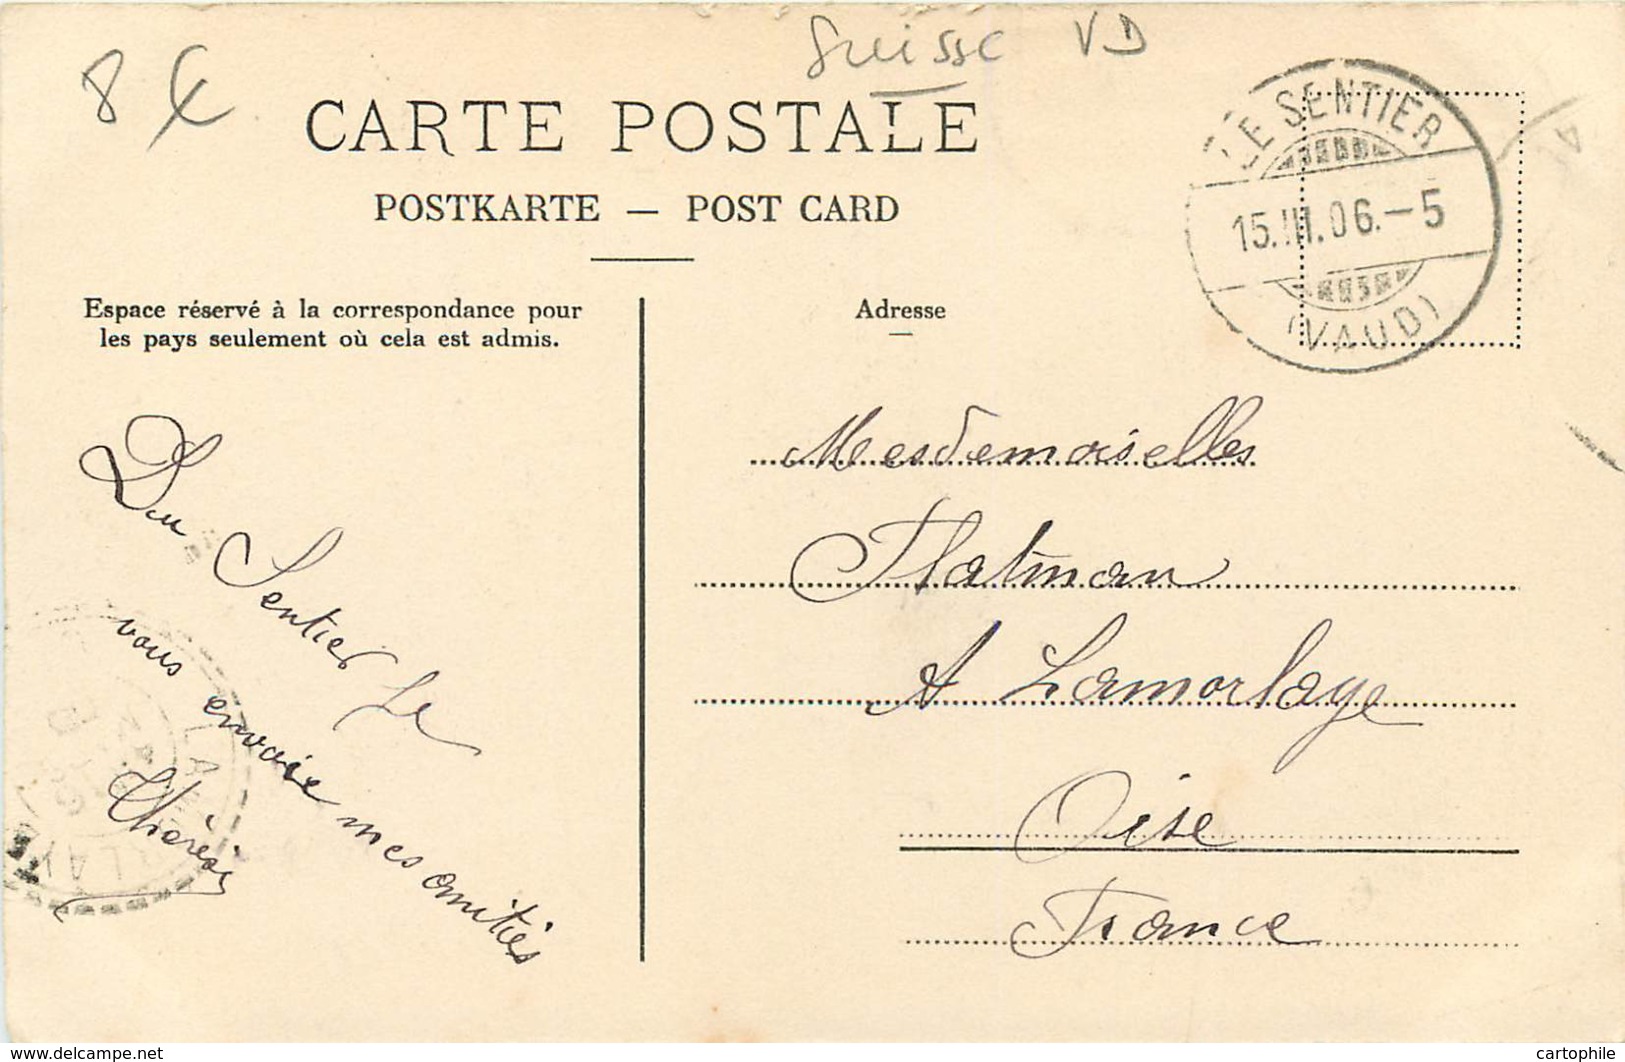 8 €
Suisse VD
CARTE POSTALE
POSTKARTE — POST CARD
LE SENTIER
15.III.06.-5
(VAUD)
Espace réservé à la correspondance pour
les pays seulement où cela est admis.
Adresse
Du Sentier Je
vous envoie mes amitiés
Thérèse
Mesdemoiselles
Flatman
A Lamorlaye
Oise
France
www.delcampe.net
cartophile